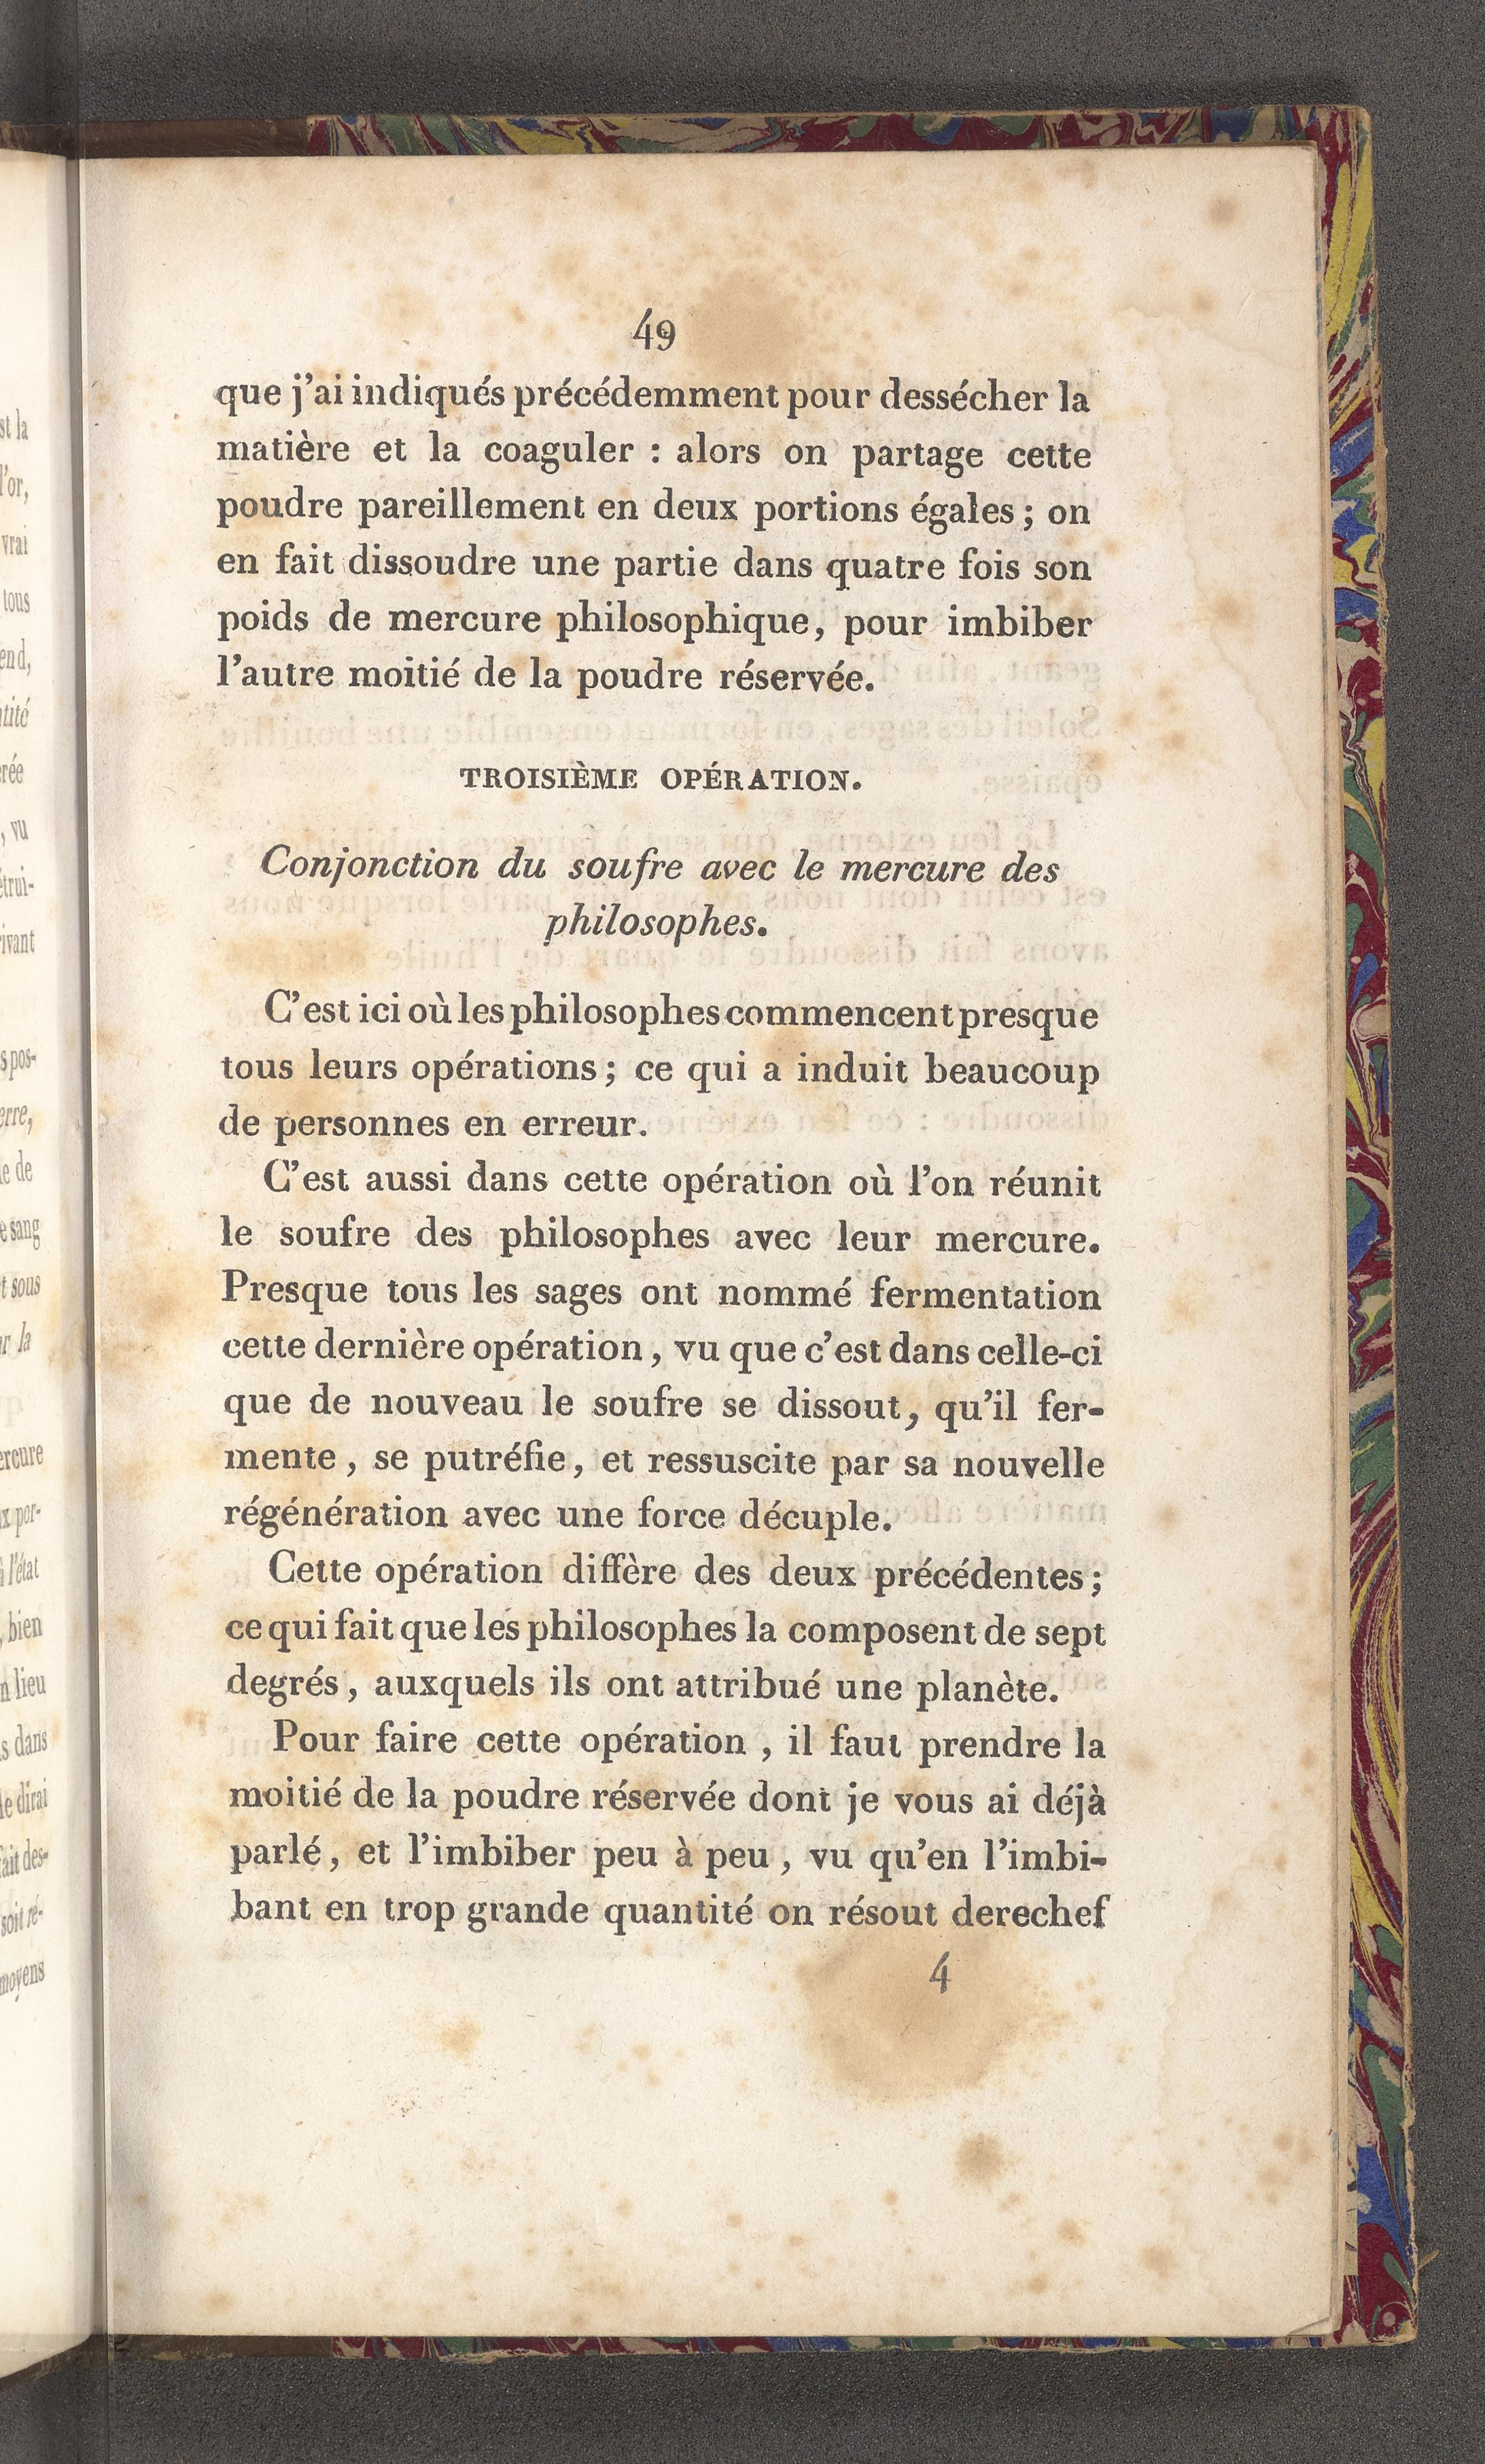 st la
l'or,
vrai
tous
end,
tité
rée
, vu
étrui-
ivant
s pos-
erre,
le de
e sang
t sous
ur la
ercure
x por-
à l'état
, bien
n lieu
s dans
le dirai
fait des-
soit ré-
moyens
49
que j'ai indiqués précédemment pour dessécher la
matière et la coaguler : alors on partage cette
poudre pareillement en deux portions égales ; on
en fait dissoudre une partie dans quatre fois son
poids de mercure philosophique, pour imbiber
l'autre moitié de la poudre réservée.
TROISIÈME OPÉRATION.
Conjonction du soufre avec le mercure des
philosophes.
C'est ici où les philosophes commencent presque
tous leurs opérations ; ce qui a induit beaucoup
de personnes en erreur.
C'est aussi dans cette opération où l'on réunit
le soufre des philosophes avec leur mercure.
Presque tous les sages ont nommé fermentation
cette dernière opération, vu que c'est dans celle-ci
que de nouveau le soufre se dissout, qu'il fer-
mente, se putréfie, et ressuscite par sa nouvelle
régénération avec une force décuple.
Cette opération diffère des deux précédentes ;
ce qui fait que les philosophes la composent de sept
degrés, auxquels ils ont attribué une planète.
Pour faire cette opération, il faut prendre la
moitié de la poudre réservée dont je vous ai déjà
parlé, et l'imbiber peu à peu, vu qu'en l'imbi-
bant en trop grande quantité on résout derechef
4